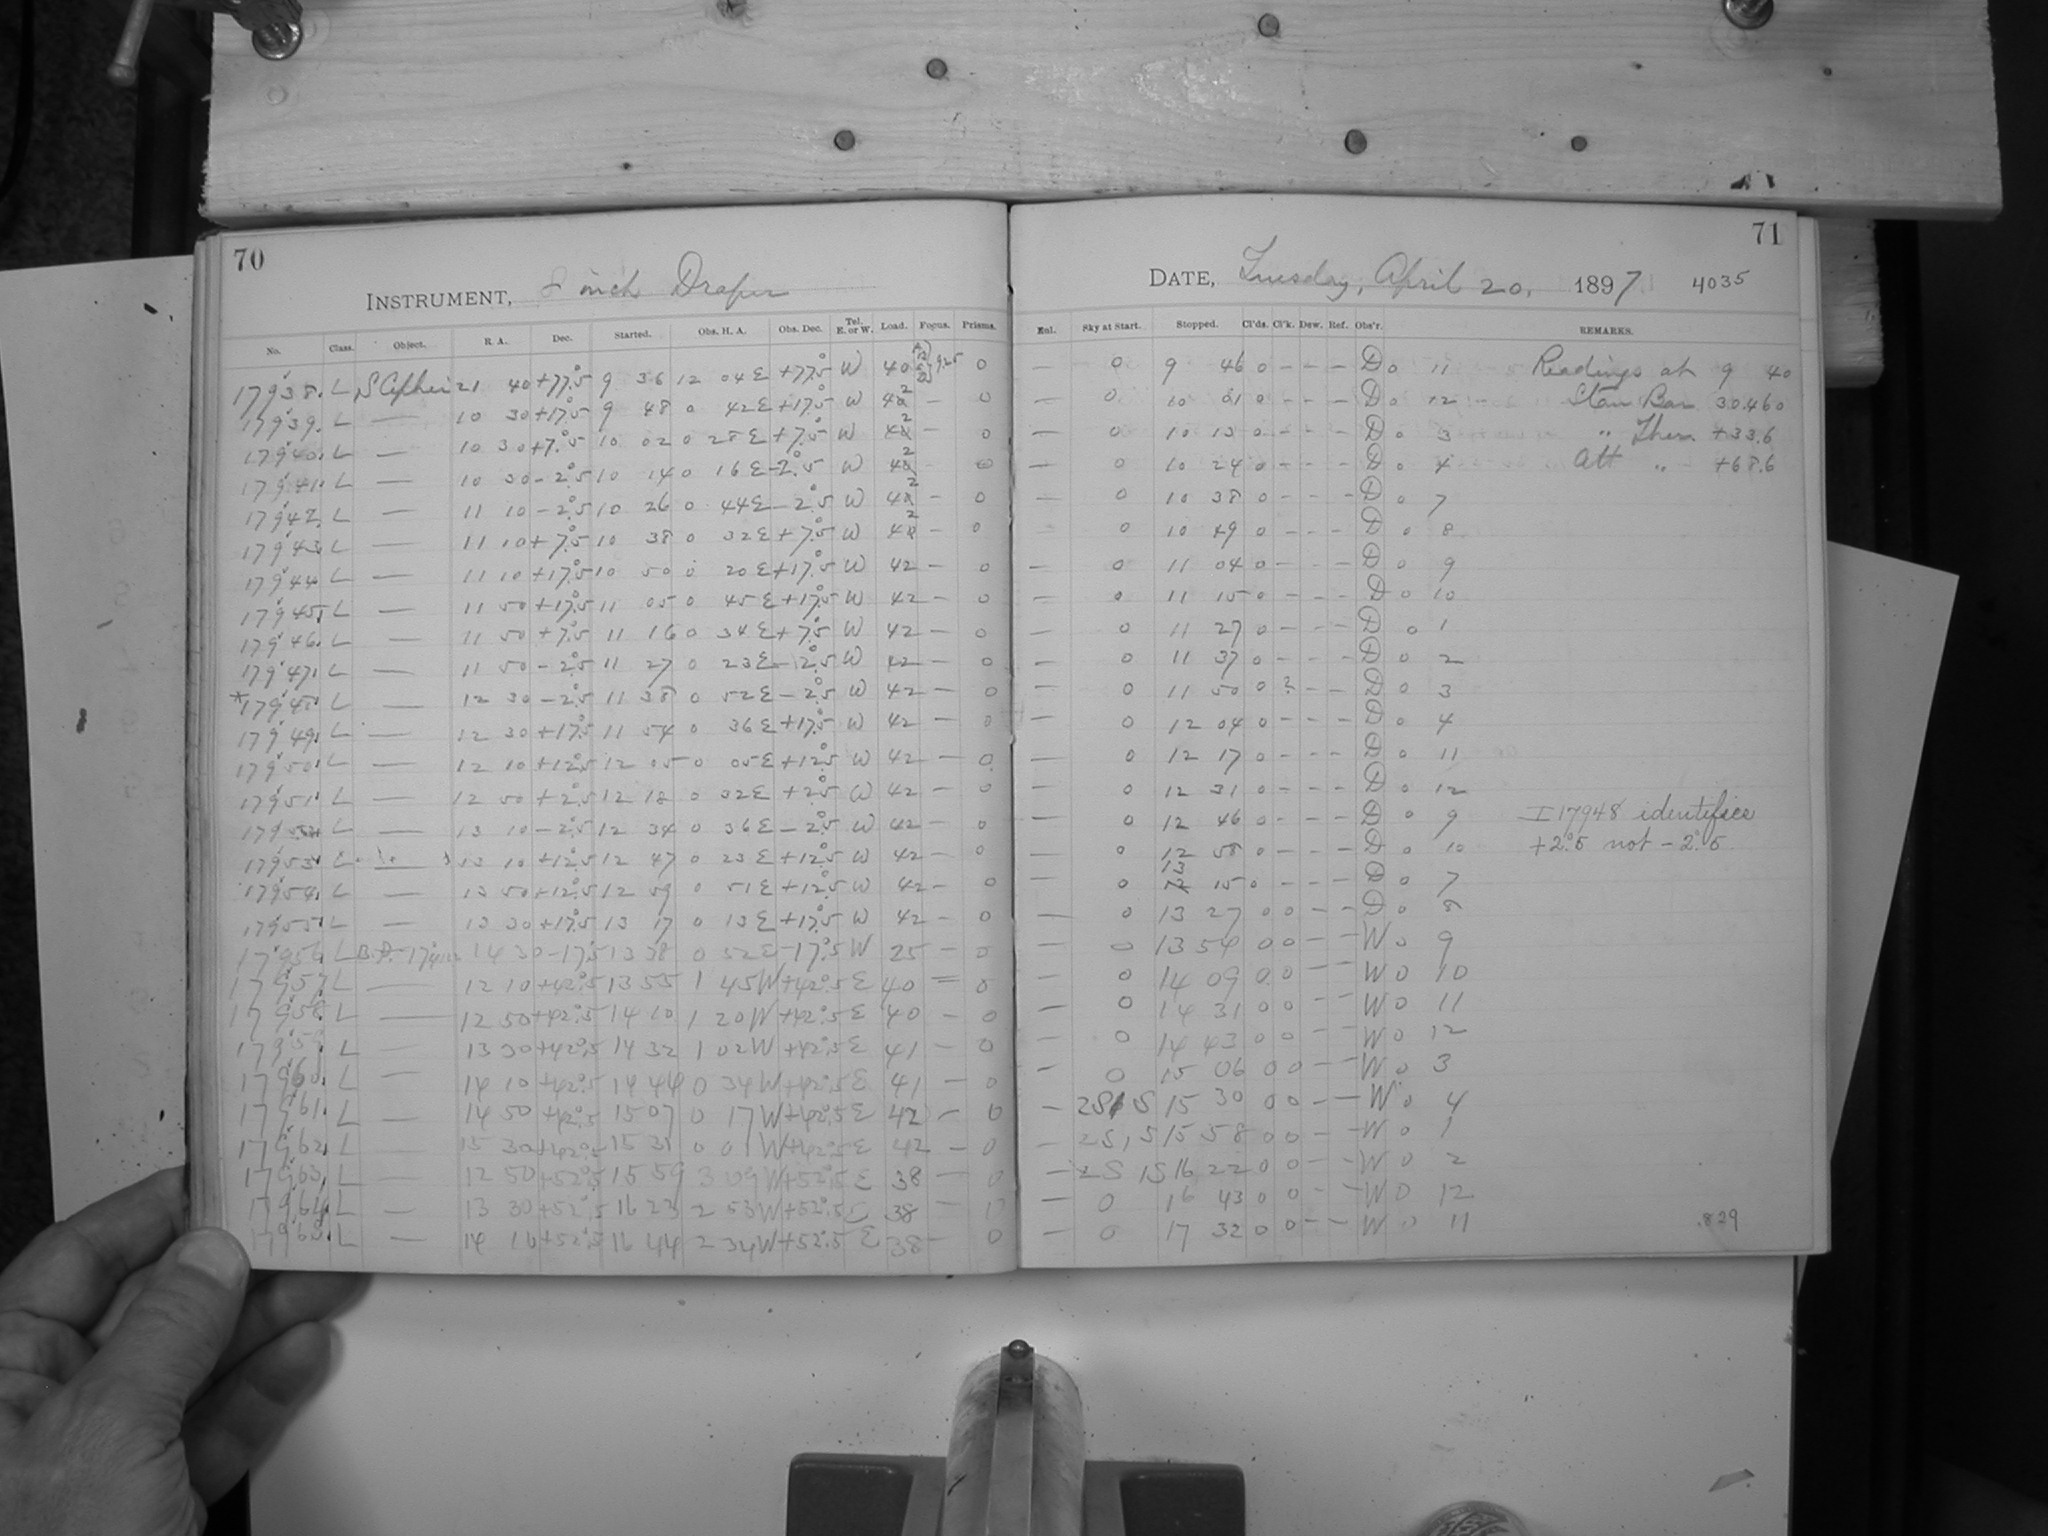 70
INSTRUMENT, 8 inch Draper
No. Class. Object. R. A. Dec. Started. Obs. H. A. Obs. Dec. Tel. E. or W. Load. Focus. Prisms.
17938. L S Cephei 21 40 +77°.5 9 36 12 04 E +77°.5 W 40 0
17939. L — 10 30 +17°.5 9 48 0 42 E +17°.5 W 42 — 0
17940. L — 10 30 +7°.5 10 02 0 28 E +7°.5 W 42 — 0
17941. L — 10 30 -2°.5 10 14 0 16 E -2°.5 W 42 — 0
17942. L — 11 10 -2°.5 10 26 0 44 E -2°.5 W 42 — 0
17943. L — 11 10 +7°.5 10 38 0 32 E +7°.5 W 42 — 0
17944. L — 11 10 +17°.5 10 50 0 20 E +17°.5 W 42 — 0
17945. L — 11 50 +17°.5 11 05 0 45 E +17°.5 W 42 — 0
17946. L — 11 50 +7°.5 11 16 0 34 E +7°.5 W 42 — 0
17947. L — 11 50 -2°.5 11 27 0 23 E -2°.5 W 42 — 0
*17948. L — 12 30 -2°.5 11 38 0 52 E -2°.5 W 42 — 0
17949. L — 12 30 +17°.5 11 54 0 36 E +17°.5 W 42 — 0
17950. L — 12 10 +12°.5 12 05 0 05 E +12°.5 W 42 — 0
17951. L — 12 50 +2°.5 12 18 0 32 E +2°.5 W 42 — 0
17952. L — 13 10 -2°.5 12 34 0 36 E -2°.5 W 42 — 0
17953. L — 13 10 +12°.5 12 47 0 23 E +12°.5 W 42 — 0
17954. L — 13 50 +12°.5 12 59 0 51 E +12°.5 W 42 — 0
17955. L — 13 30 +17°.5 13 17 0 13 E +17°.5 W 42 — 0
17956. L 14 30 -17°.5 13 38 0 52 E -17°.5 W 25 — 0
17957. L — 12 10 +42°.5 13 55 1 45 W +42°.5 E 40 — 0
17958. L — 12 50 +42°.5 14 10 1 20 W +42°.5 E 40 — 0
17959. L — 13 30 +42°.5 14 32 1 02 W +42°.5 E 41 — 0
17960. L — 14 10 +42°.5 14 44 0 34 W +42°.5 E 41 — 0
17961. L — 14 50 +42°.5 15 07 0 17 W +42°.5 E 42 — 0
17962. L — 15 30 +42°.5 15 31 0 01 W +42°.5 E 42 — 0
17963. L — 12 50 +52°.5 15 59 3 09 W +52°.5 E 38 — 0
17964. L — 13 30 +52°.5 16 23 2 53 W +52°.5 E 38 — 0
17965. L — 14 10 +52°.5 16 44 2 34 W +52°.5 E 38 — 0
71
DATE, Tuesday, April 20, 1897 4035
Eul. Sky at Start. Stopped. Cl'ds. Cl'k. Dew. Ref. Obs'r. REMARKS.
— 0 9 46 0 - - - D 0 11 Readings at 9 40
— 0 10 01 0 - - - D 0 12 Stan Bar 30.460
— 0 10 13 0 - - - D 0 3 " Ther. +33.6
— 0 10 24 0 - - - D 0 4 Att " +68.6
— 0 10 38 0 - - - D 0 7
— 0 10 49 0 - - - D 0 8
— 0 11 04 0 - - - D 0 9
— 0 11 15 0 - - - D 0 10
— 0 11 27 0 - - - D 0 1
— 0 11 37 0 - - - D 0 2
— 0 11 50 0 ? - - D 0 3
— 0 12 04 0 - - - D 0 4
— 0 12 17 0 - - - D 0 11
— 0 12 31 0 - - - D 0 12
— 0 12 46 0 - - - D 0 9 I 17948 identifice
— 0 12 58 0 - - - D 0 10 +2°.5 not -2°.5
— 0 13 15 0 - - - D 0 7
— 0 13 27 0 0 - - D 0 8
— 0 13 54 0 0 - - W 0 9
— 0 14 09 0 0 - - W 0 10
— 0 14 31 0 0 - - W 0 11
— 0 14 43 0 0 - - W 0 12
— 0 15 06 0 0 - - W 0 3
— 2S 15 30 0 0 - - W 0 4
— 2S, S 15 58 0 0 - - W 0 1
— 2S 1S 16 22 0 0 - - W 0 2
— 0 16 43 0 0 - - W 0 12
— 0 17 32 0 0 - - W 0 11 .829